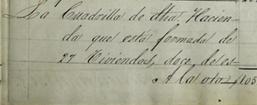 La Cuadrilla de Alta. Hacien-
da que está formada de
27 Viviendas, doce de es-
A la ota 105